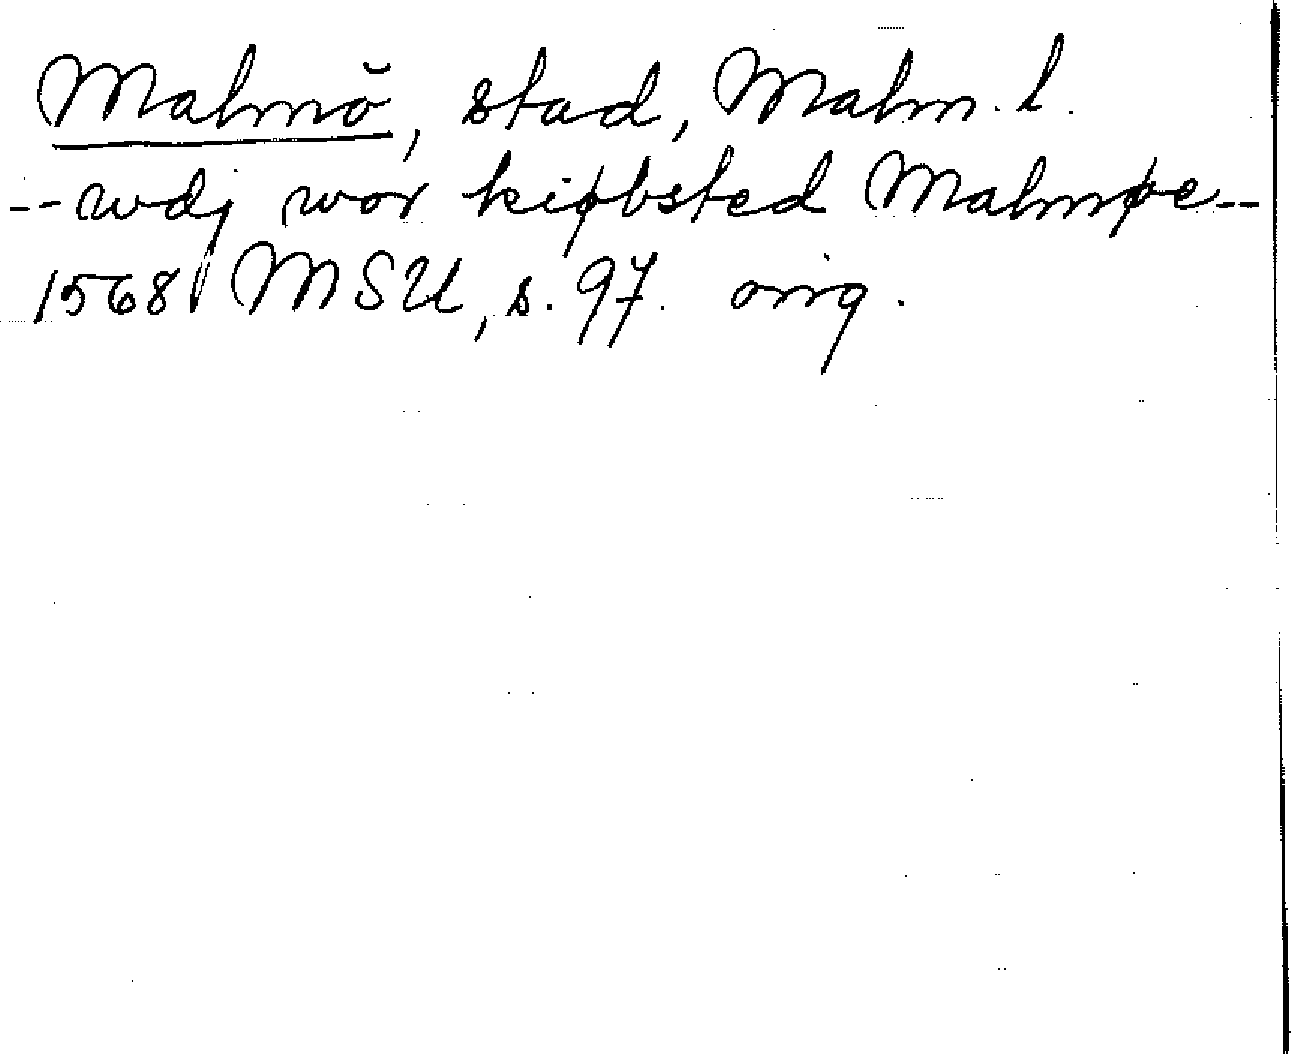 Malmö, stad, Malm. l.
-- wdj wor kiøbsted Malmøe --
1568 MSU, s. 97. orig.